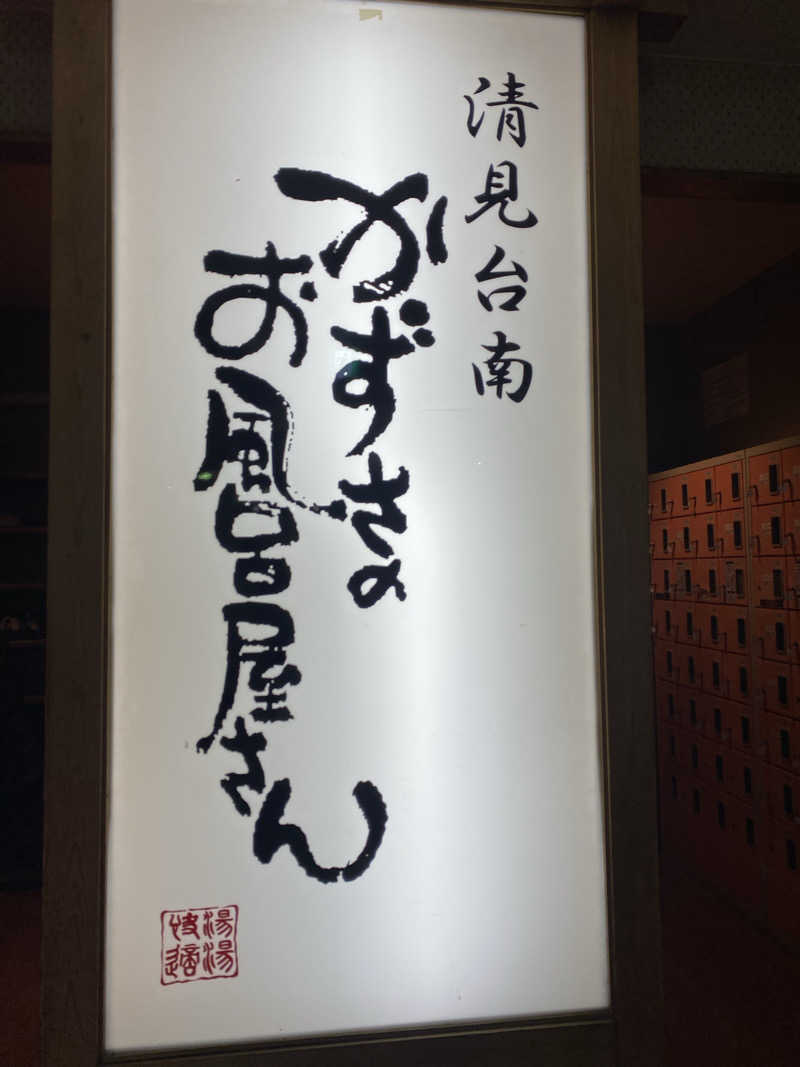 清見台南
かずさの
お風呂屋さん
湯湯
快適